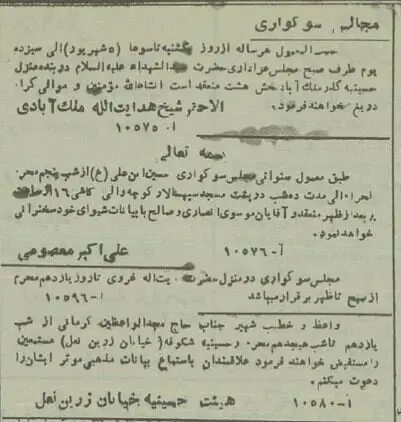 مجالس سوگواری
حسب المعمول هرساله از روز یکشنبه تاسوعا (۵ شهریور) الی سیزده
یوم طرف صبح مجلس عزاداری حضرت سیدالشهداء علیه السلام در بنده منزل
حسینیه گذر ملک آباد بخش هشت منعقد است انشاءالله مؤمنین و موالی کرام
دریغ نخواهند فرمود.
الاحقر شیخ هدایت الله ملک آبادی
آ- ۱۰۵۷۵
بسمه تعالی
طبق معمول سنواتی مجلس سوگواری حسین ابن علی (ع) از شب پنجم محرم
الحرام الی مدت ده شب در پشت مسجد سپهسالار کوچه والی کاشی ۱۶ از ساعت
بعد از ظهر منعقد و آقایان موسوی انصاری و صالح با بیانات شیوای خود سخنرانی
خواهد نمود.
آ- ۱۰۵۷۶ علی اکبر معصومی
مجلس سوگواری در منزل حضرت آیت اله غروی تا روز یازدهم محرم
از صبح تا ظهر برقرار میباشد
آ- ۱۰۵۹۶
واعظ و خطیب شهیر جناب حاج مجدالواعظین کرمانی از شب
یازدهم تا شب هیجدهم محرم در حسینیه شکوفه (خیابان زرین نعل) مستمعین
را مستفیض خواهند فرمود علاقمندان باستماع بیانات مذهبی موثر ایشان را
دعوت میکنیم.
آ- ۱۰۵۸۰ هیئت حسینیه خیابان زرین نعل